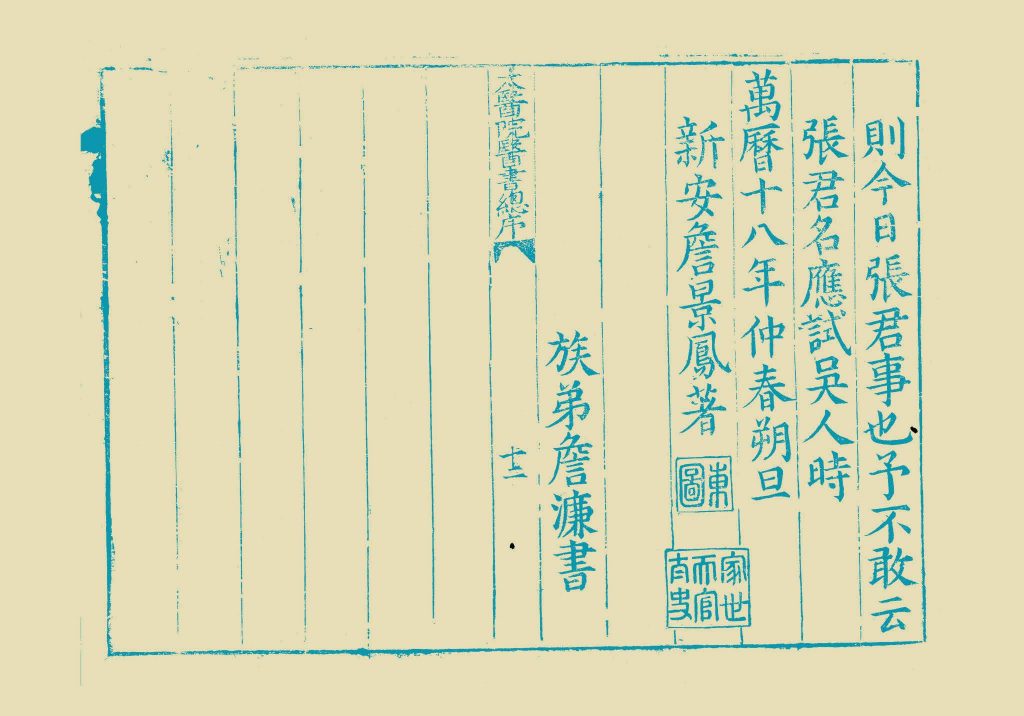 則今日張君事也予不敢云
張君名應試吳人時
萬曆十八年仲春朔旦
新安詹景鳳著
東圖
家世
而官
族弟詹濂書
太醫院醫書總序
十二